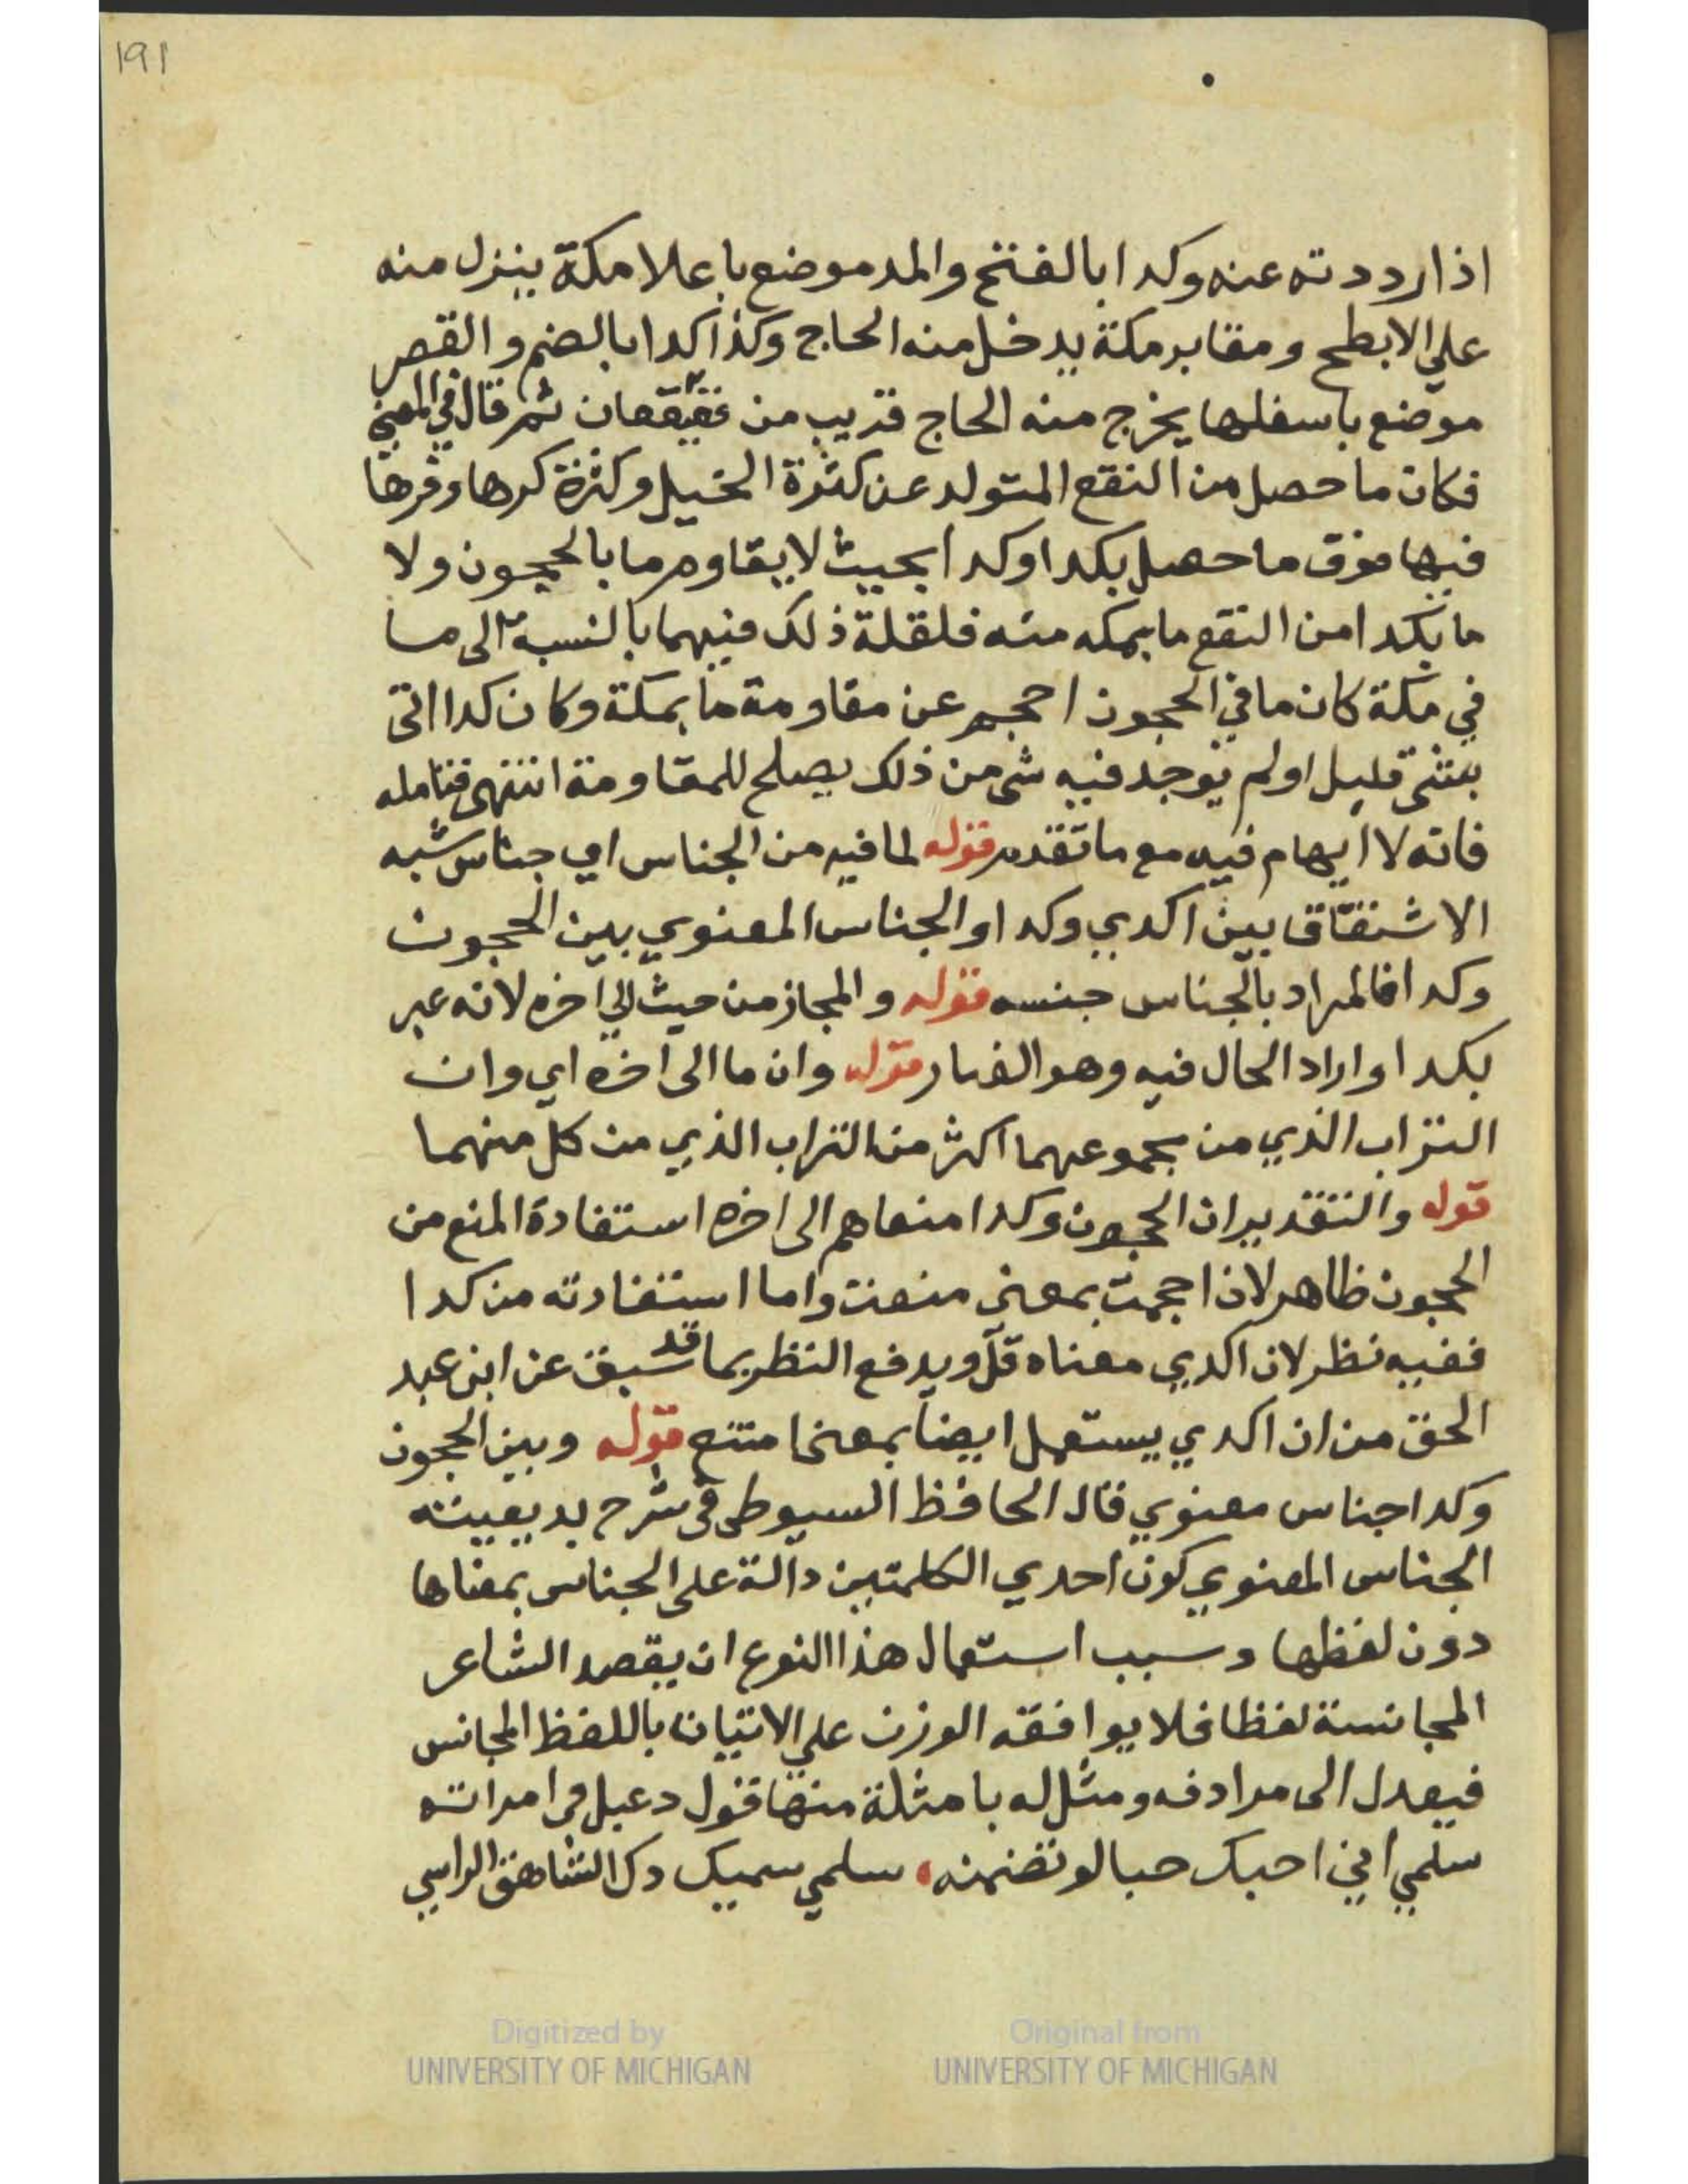 191
اذا رددته عنه وكدا بالفتح والمد موضع باعلا مكة ينزل منه
علي الابطح ومقابر مكة يدخل منه الحاج وكذا كدا بالضم والقصر
موضع باسفلها يخرج منه الحاج قريب من قعيقعان ثم قال في المعني
فكان ما حصل من النقع المتولد عن كثرة الخيل وكثرة كرها وفرها
فيها فوق ما حصل بكدا وكدا بحيث لا يقاوم ما بالحجون ولا
ما بكدا من النقع ما بمكه منه فلقلة ذلك فيهما بالنسبة الى ما
في مكة كان ما في الحجون احجم عن مقاومة ما بمكة وكان كدا اتى
بشئ قليل او لم يوجد فيه شي من ذلك يصلح للمقاومة انتهى فتامله
فانه لا ايهام فيه مع ما تقدم قوله لما فيه من الجناس اي جناس شبه
الاشتقاق بين اكدي وكدا والجناس المعنوي بين الحجون
وكدا فالمراد بالجناس جنسه قوله والمجاز من حيث الي اخره لانه عبر
بكدا واراد الحال فيه وهو الغبار قوله وان ما الى اخره اي وان
التراب الذي من مجموعهما اكثر من التراب الذي من كل منهما
قوله والتقدير ان الحجون وكدا منعاهم الى اخره استفادة المنع من
الحجون ظاهر لان احجمت بمعنى منعت واما استفادته من كدا
ففيه نظر لان اكدي معناه قلّ ويدفع النظر بما قد سبق عن ابن عبد
الحق من ان اكدي يستعمل ايضا بمعنا منع قوله وبين الحجون
وكدا جناس معنوي قال الحافظ السيوطى فى شرح بديعيته
الجناس المعنوي كون احدي الكلمتين دالة على الجناس بمعناها
دون لفظها وسبب استعمال هذا النوع ان يقصد الشاعر
المجانسة لفظا فلا يوافقه الوزن علي الاتيان باللفظ المجانس
فيعدل الى مرادفه ومثل له بامثلة منها قول دعبل في امراته
سلمي اني احبك حبا لو تضمنه، سلمي سميك دك الشاهق الراسي
Digitized by
UNIVERSITY OF MICHIGAN
Original from
UNIVERSITY OF MICHIGAN